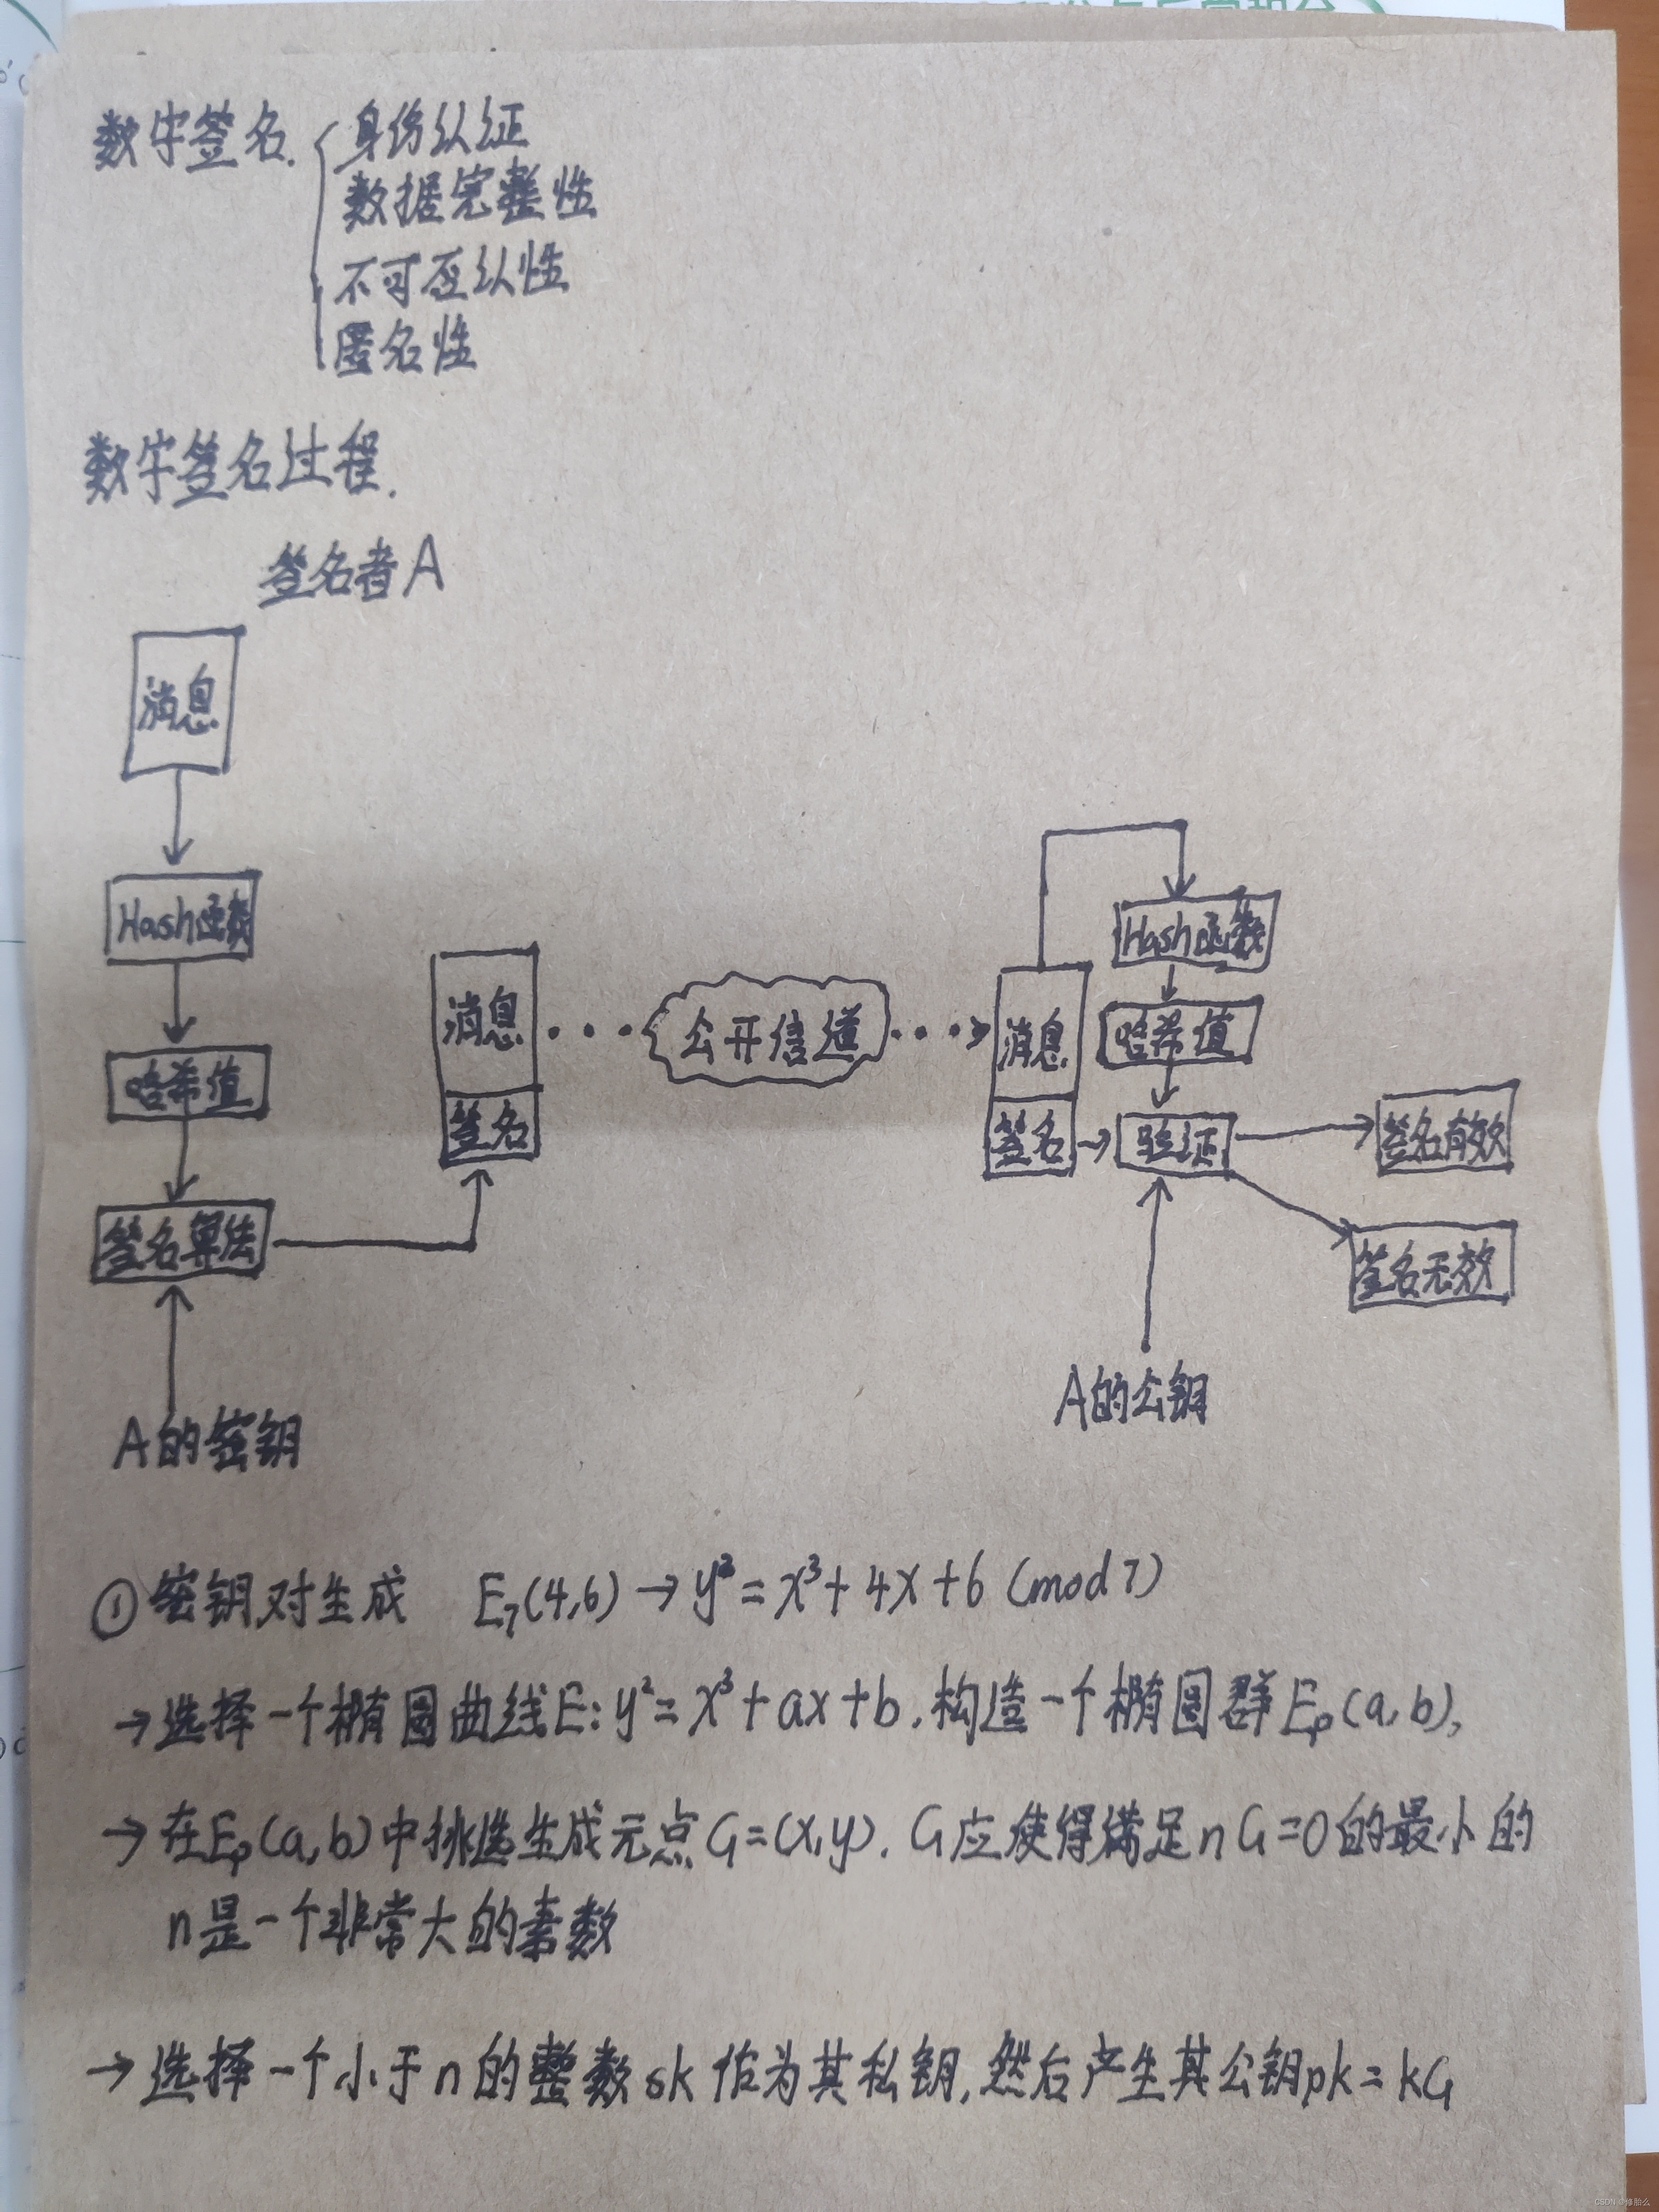 数字签名.
身份认证
数据完整性
不可否认性
匿名性
数字签名过程.
签名者A
消息
Hash函数
哈希值
签名算法
A的密钥
消息
签名
公开信道
消息
签名
Hash函数
哈希值
验证
签名有效
签名无效
A的公钥
① 密钥对生成 E₇(4,6) → y² = x³ + 4x + 6 (mod 7)
→ 选择一个椭圆曲线E: y² = x³ + ax + b, 构造一个椭圆群Eₚ(a,b),
→ 在Eₚ(a,b)中挑选生成元点G=(x,y). G应使得满足nG=0的最小的
n是一个非常大的素数
→ 选择一个小于n的整数sk作为其私钥,然后产生其公钥pk=kG
CSDN @修胎么